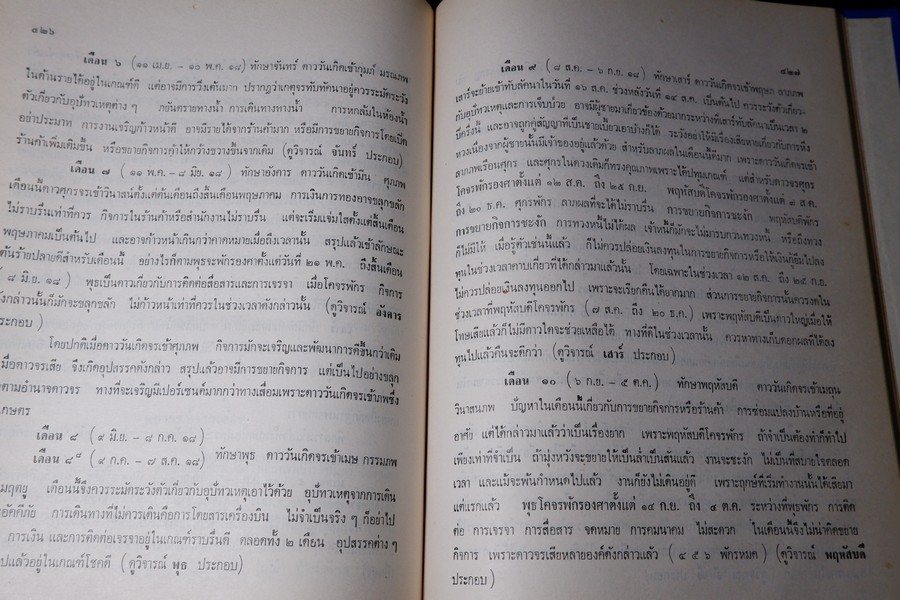 ๔๒๖
เดือน ๖ (๑๑ เม.ย. - ๑๐ พ.ค. ๑๘) ทักษาจันทร์ ดาววันเกิดเข้ากุมภ์ มรณภพ
ในด้านรายได้อยู่ในเกณฑ์ดี แต่อาจมีการวิ่งเต้นมาก ปรากฏว่าเกตุจรทับทักษาอยู่ควรระมัดระวัง
ตัวเกี่ยวกับอุบัทวเหตุต่าง ๆ ภยันตรายทางน้ำ การเดินทางทางน้ำ การหกล้มในห้องน้ำ
อย่าประมาท การงานเจริญก้าวหน้าดี อาจมีรายได้จากร้านค้ามาก หรือมีการขยายกิจการโดยเปิด
ร้านค้าเพิ่มเติมขึ้น หรือขยายกิจการค้าให้กว้างขวางขึ้นจากเดิม (ดูวิจารณ์ จันทร์ ประกอบ)
เดือน ๗ (๑๑ พ.ค. - ๘ มิย. ๑๘) ทักษาอังคาร ดาววันเกิดเข้ามีน ศุภภพ
เดือนนี้ดาวศุกรจรเข้าวินาสน์ตั้งแต่ต้นเดือนถึงสิ้นเดือนพฤษภาคม การเงินการทองอาจขลุกขลัก
ไม่ราบรื่นเท่าที่ควร กิจการในร้านค้าหรือสำนักงานไม่ราบรื่น แต่จะเริ่มแจ่มใสตั้งแต่สิ้นเดือน
พฤษภาคมเป็นต้นไป และอาจก้าวหน้าเกินกว่าคาดหมายเมื่อถึงเวลานั้น สรุปแล้วเข้าลักษณะ
ต้นร้ายปลายดีสำหรับเดือนนี้ อย่างไรก็ตามพุธจะพักรองศาตั้งแต่วันที่ ๒๑ พ.ค. ถึงสิ้นเดือน
(๘ มิ.ย. ๑๘) พุธเป็นดาวเกี่ยวกับการติดต่อสื่อสารและการเจรจา เมื่อโคจรพักร กิจการ
ดังกล่าวนั้นก็มักจะขลุกขลัก ไม่ก้าวหน้าเท่าที่ควรในช่วงเวลาดังกล่าวนั้น (ดูวิจารณ์ อังคาร
ประกอบ)
โดยปกติเมื่อดาววันเกิดจรเข้าศุภภพ กิจการมักจะเจริญและพัฒนาการดีขึ้นกว่าเดิม
เมื่อดาวจรเสีย จึงเกิดอุปสรรคดังกล่าว สรุปแล้วอาจมีการขยายกิจการ แต่เป็นไปอย่างขลุก
ตามอำนาจดาวจร ทางที่จะเจริญมีเปอร์เซนต์มากกว่าทางเสื่อมเพราะดาววันเกิดจรเข้าภพซึ่ง
เกษตร
เดือน ๘ (๙ มิ.ย. - ๘ ก.ค. ๑๘)
เดือน ๘๘ (๙ ก.ค. - ๗ ส.ค. ๑๘) ทักษาพุธ ดาววันเกิดเข้าเมษ กรรมภพ
มฤตยู เดือนนี้จึงควรระมัดระวังตัวเกี่ยวกับอุบัทวเหตุเอาไว้ด้วย อุบัทวเหตุจากการเดิน
อัคคีภัย การเดินทางที่ไม่ควรเดินคือการโดยสารเครื่องบิน ไม่จำเป็นจริง ๆ ก็อย่าไป
การเงิน และการติดต่อเจรจาอยู่ในเกณฑ์ราบรื่นดี ตลอดทั้ง ๒ เดือน อุปสรรคต่าง ๆ
ปแล้วอยู่ในเกณฑ์โชคดี (ดูวิจารณ์ พุธ ประกอบ)
๔๒๗
เดือน ๙ (๘ ส.ค. - ๖ ก.ย. ๑๘) ทักษาเสาร์ ดาววันเกิดเข้าพฤษภ ลาภภพ
เสาร์จรย้ายเข้าทับลัคนาในวันที่ ๑๖ ส.ค. ช่วงหลังวันที่ ๑๔ ส.ค. เป็นต้นไป ควรระวังตัวเกี่ยว-
กับอุบัทวเหตุและการเจ็บป่วย อาจมีผู้ชายมาเกี่ยวข้องด้วยมากระหว่างที่เสาร์ทับลัคนาเป็นเวลา ๒
ปีครึ่งนี้ และอาจถูกคู่สัญญาที่เป็นชายเบี้ยวเอาบ้างก็ได้ ระวังอย่าให้มีเรื่องเสียหายเกี่ยวกับการหึง
หวงเนื่องจากผู้ชายนั้นมีเจ้าของอยู่แล้วด้วย สำหรับลาภผลในเดือนนี้ดีมาก เพราะดาววันเกิดจรเข้า
ลาภภพเรือนศุกร และศุกรในดวงเดิมก็ทรงคุณภาพเพราะได้ปทุมเกณฑ์ แต่สำหรับดาวจรศุกร
โคจรพักรองศาตั้งแต่ ๑๒ ส.ค. ถึง ๒๕ ก.ย. พฤหัสบดีโคจรพักรองศาตั้งแต่ ๗ ส.ค.
ถึง ๒๐ ธ.ค. ศุกรพักร ลาภผลจะได้ไม่ราบรื่น การขยายกิจการชะงัก พฤหัสบดีพักร
การขยายกิจการชะงัก การทวงหนี้ไม่ได้ผล เจ้าหนี้ก็มักจะไม่มารบกวนทวงหนี้ หรือถึงทวง
ก็ไม่มีให้ เมื่อรู้ตัวเช่นนี้แล้ว ก็ไม่ควรปล่อยเงินลงทุนในการขยายกิจการหรือให้เงินกู้ยืมไปลง
ทุนในช่วงเวลาคาบเกี่ยวที่ได้กล่าวมาแล้วนั้น โดยเฉพาะในช่วงเวลา ๑๒ ธ.ค. ถึง ๒๕ ก.ย.
ไม่ควรปล่อยเงินลงทุนออกไป เพราะจะเรียกคืนได้ยากมาก ส่วนการขยายกิจการนั้นควรงดใน
ช่วงเวลาที่พฤหัสบดีโคจรพักร (๗ ส.ค. ถึง ๒๐ ธ.ค.) เพราะพฤหัสบดีเป็นดาวใหญ่เมื่อให้
โทษเสียแล้วก็ไม่มีดาวใดจะช่วยเหลือได้ ทางที่ดีในช่วงเวลานั้น ควรหาทางเก็บดอกผลที่ได้ลง
ทุนไปแล้วคืนจะดีกว่า (ดูวิจารณ์ เสาร์ ประกอบ)
เดือน ๑๐ (๖ ก.ย. - ๕ ต.ค.) ทักษาพฤหัสบดี ดาววันเกิดจรเข้าเมถุน
วินาสนภพ ปัญหาในเดือนนี้เกี่ยวกับการขยายกิจการหรือร้านค้า การซ่อมแปลงบ้านหรือที่อยู่
อาศัย แต่ได้กล่าวมาแล้วว่าเป็นเรื่องยาก เพราะพฤหัสบดีโคจรพักร ถ้าจำเป็นต้องทำก็ทำไป
เพียงเท่าที่จำเป็น ถ้ามุ่งหวังจะขยายให้เป็นล่ำเป็นสันแล้ว งานจะชะงัก ไม่เป็นที่สบายใจตลอด
เวลา และแม้จะพ้นกำหนดไปแล้ว งานก็ยังไม่เดินอยู่ดี เพราะฤกษ์ที่เริ่มทำงานนั้นได้เสียมา
แต่แรกแล้ว พุธโคจรพักรองศาตั้งแต่ ๑๔ ก.ย. ถึง ๔ ต.ค. ระหว่างที่พุธพักร การติด
ต่อ การเจรจา การสื่อสาร จดหมาย การคมนาคม ไม่สะดวก ในเดือนนี้จึงไม่น่าคิดขยาย
กิจการ เพราะดาวจรเสียหลายองค์ดังกล่าวแล้ว (๔ ๕ ๖ พักรหมด) (ดูวิจารณ์ พฤหัสบดี
ประกอบ)